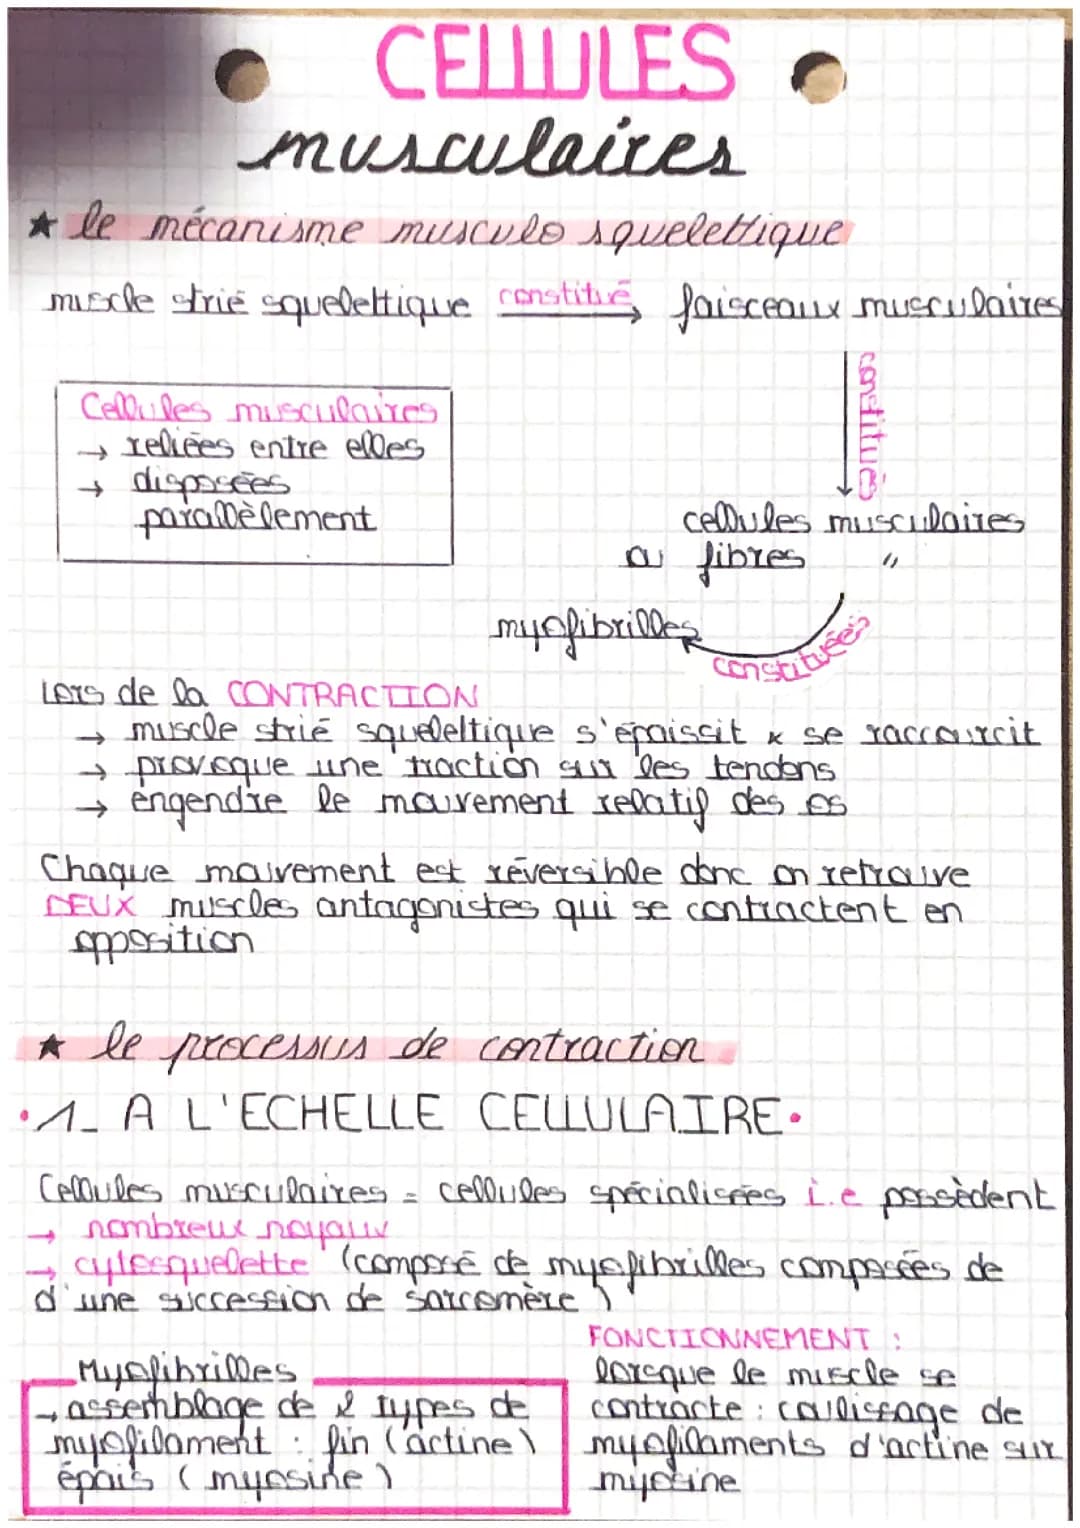 CELLULES
musculaires
★ le mécanisme musculo squelettique
muscle strié squelettique constitué faisceaux musculaires
constitués
Cellules musculaires
→ reliées entre elles
→ disposées
parallèlement
cellules musculaires
ou fibres "
myofibrilles
constituées
Lors de la CONTRACTION
→ muscle strié squelettique s'épaissit x se raccourcit
→ provoque une traction sur les tendons
→ engendre le mouvement relatif des os
Chaque mouvement est réversible donc on retrouve
DEUX muscles antagonistes qui se contractent en
opposition
★ le processus de contraction
•1_ A L'ECHELLE CELLULAIRE•
Cellules musculaires = cellules spécialisées i.e possèdent
→ nombreux noyaux
→ cytosquelette (composé de myofibrilles composées de
d'une succession de sarcomère)
Myofibrilles
→ assemblage de 2 types de
myofilament : fin (actine)
épais (myosine)
FONCTIONNEMENT :
lorsque le muscle se
contracte : coulissage de
myofilaments d'actine sur
myosine